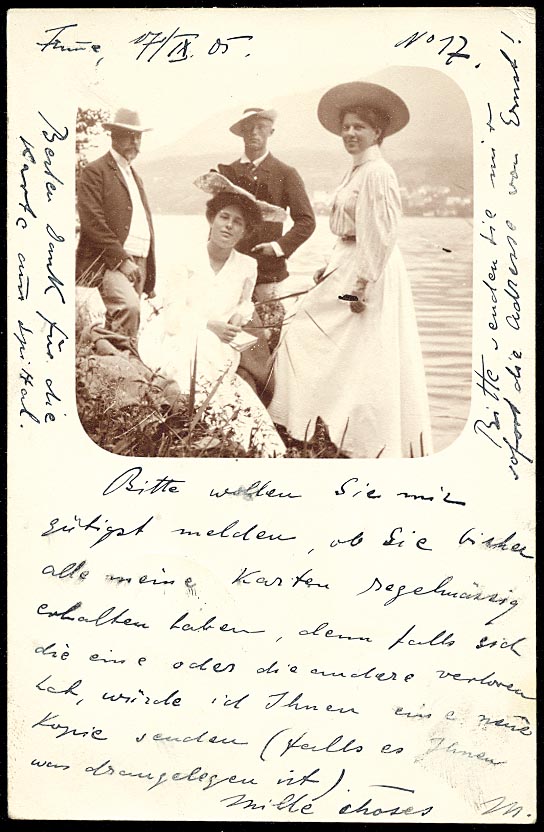 Fiume, 17/IX. 05.
No 17.
Besten Dank für die
Karte aus Spittal.
Bitte senden Sie mir
sofort die Adresse von Ernst!
Bitte wollen Sie mir
gütigst melden, ob Sie bisher
alle meine Karten regelmässig
erhalten haben, denn falls sich
die eine oder die andere verloren
hat, würde ich Ihnen eine neue
Kopie senden (falls es Ihnen
was drangelegen ist)
Mille choses M.